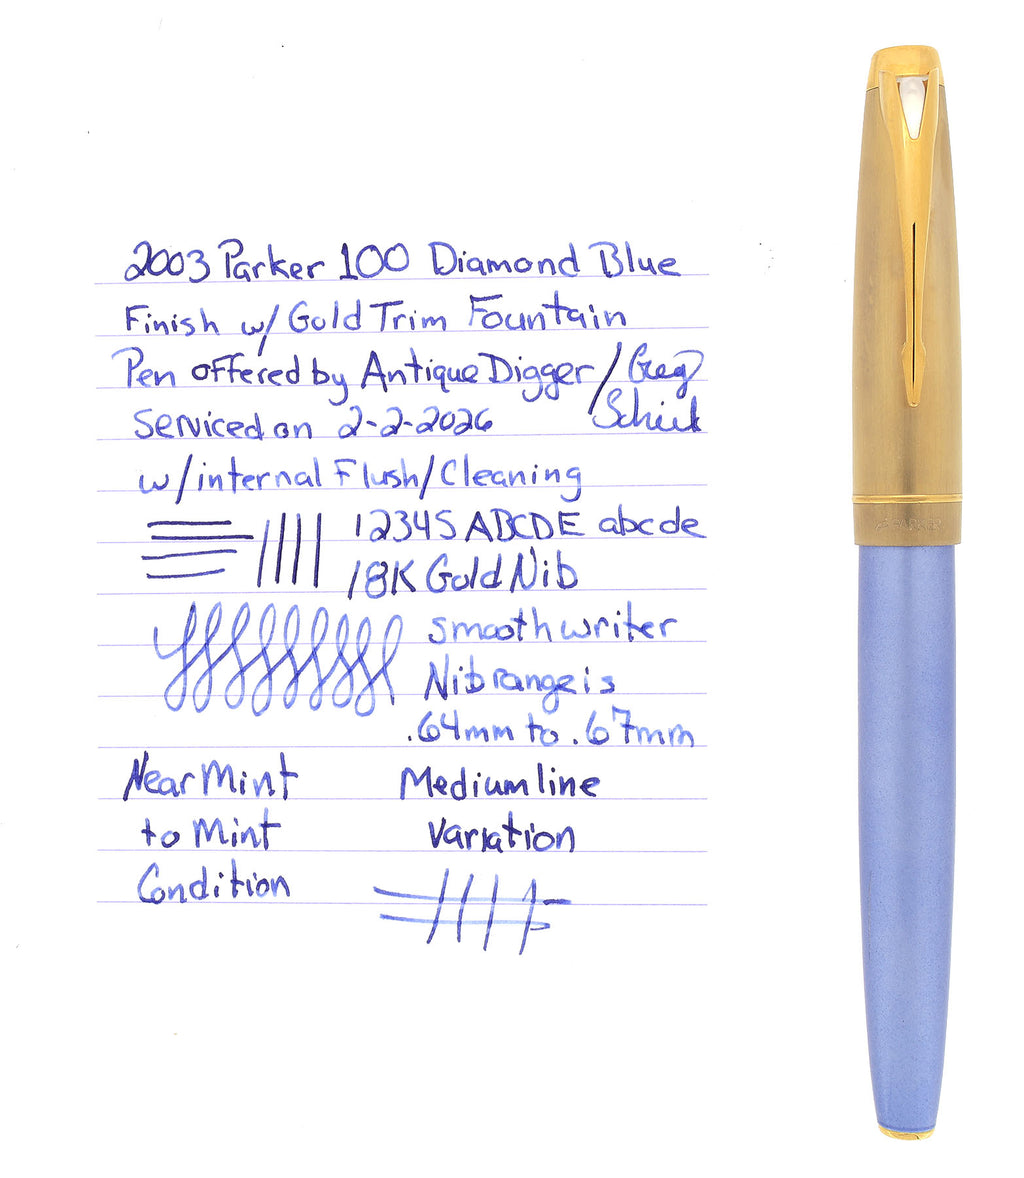 2003 Parker 100 Diamond Blue
Finish w/ Gold Trim Fountain
Pen offered by Antique Digger / Greg
Serviced on 2-2-2026
w/internal Flush/Cleaning
12345 ABCDE abcde
18K Gold Nib
smooth writer
Nib range is
.64mm to .67mm
Near Mint
to Mint
Condition
Medium line
variation
PARKER